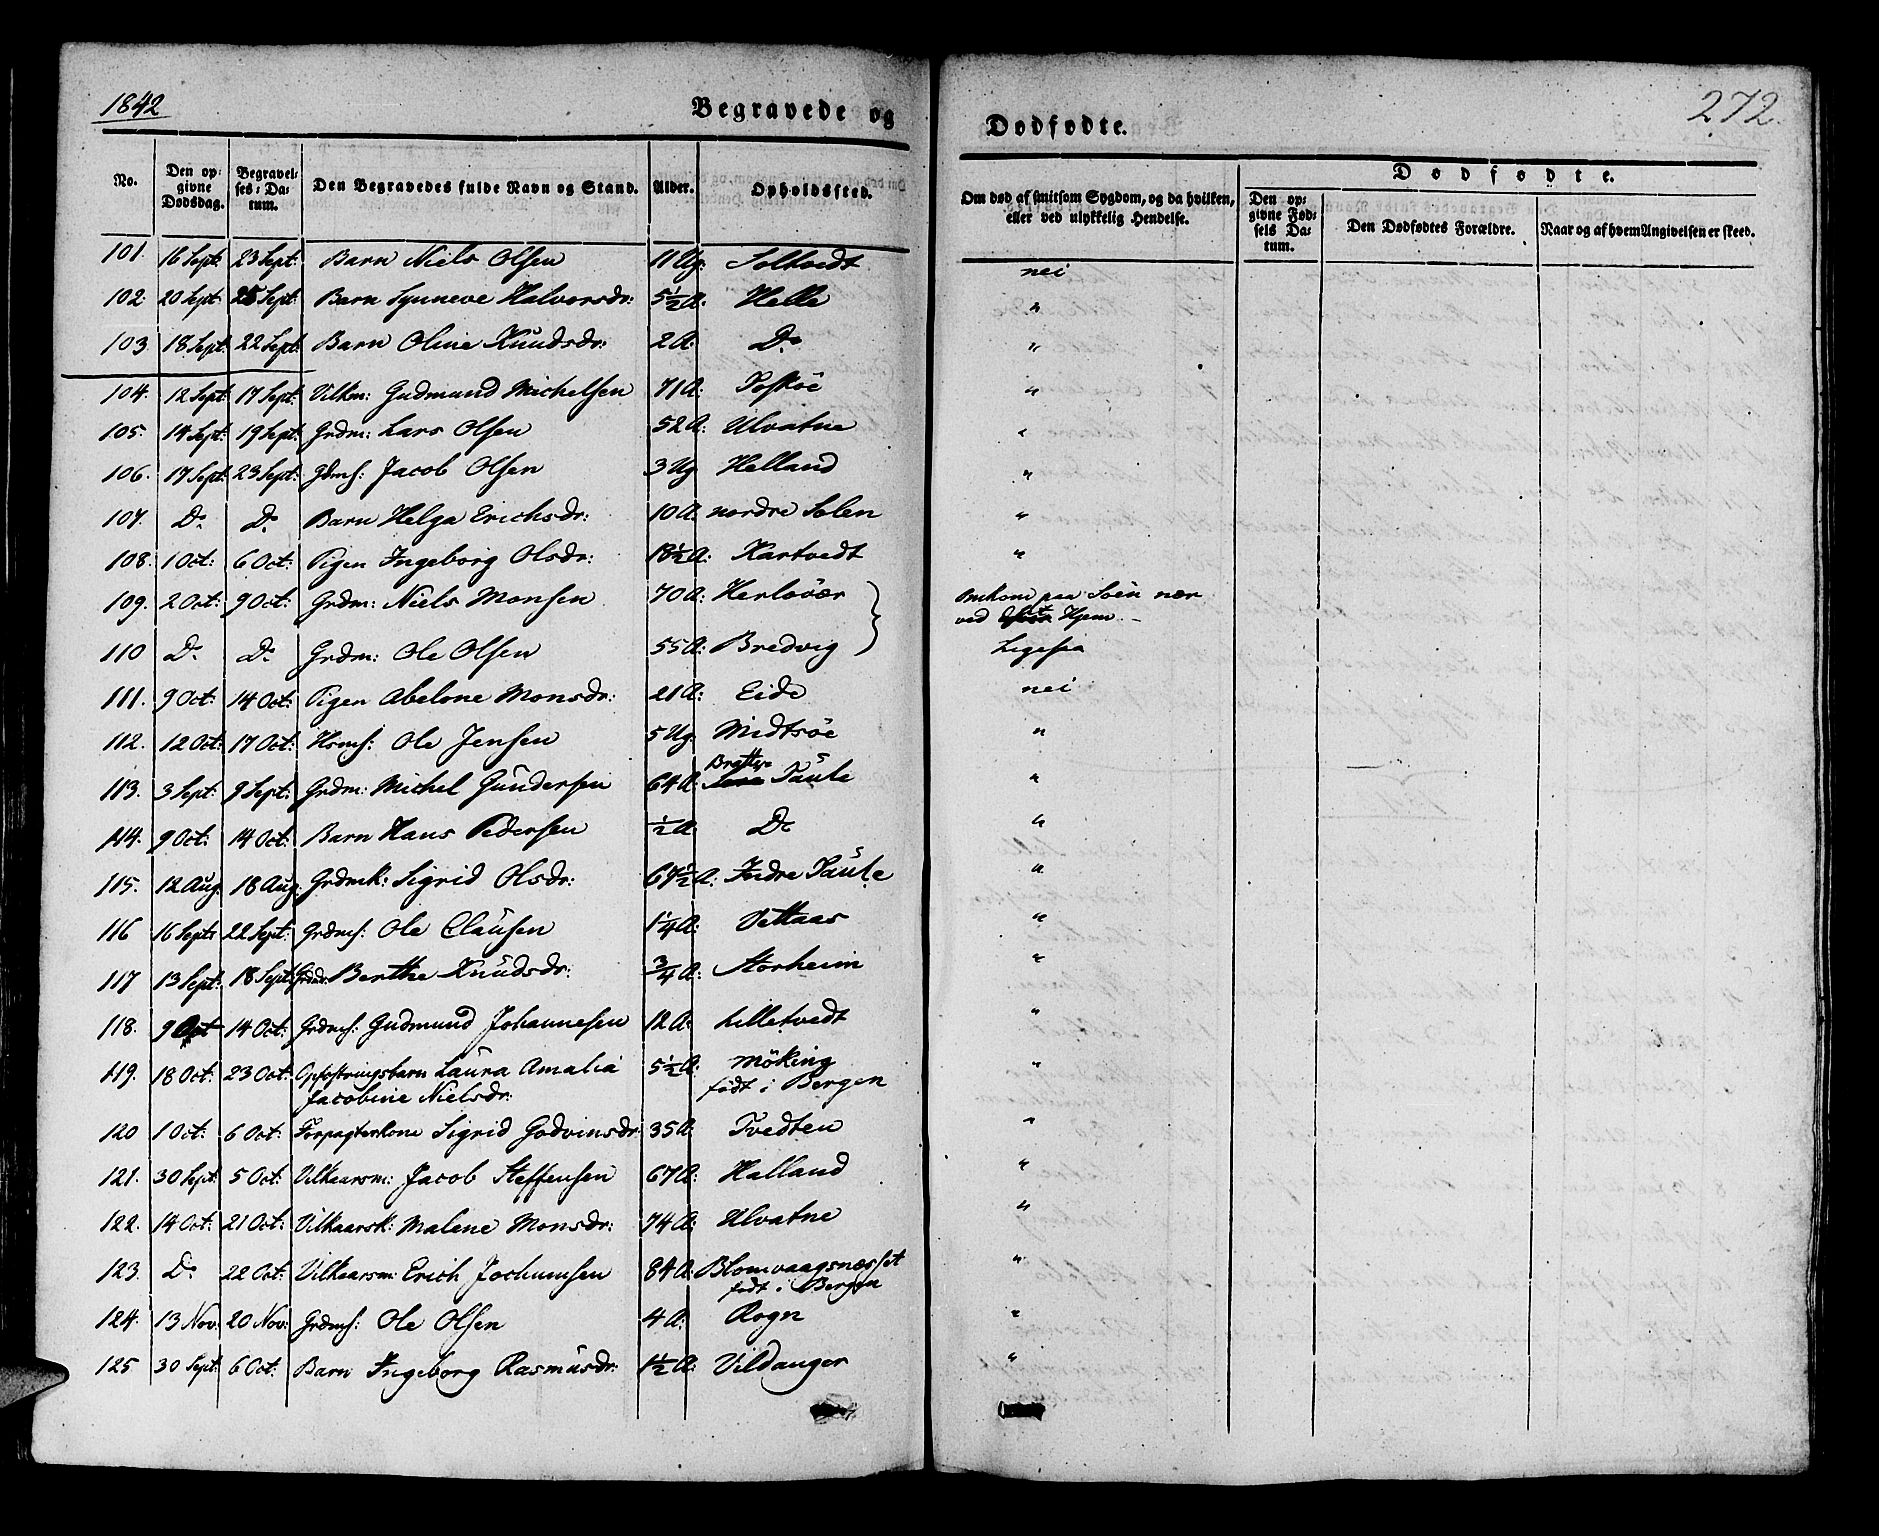 1842 Begravede og Dødfødte. 272.
No. | Den op-givne Dødsdag. | Begravel-ses-Da-tum. | Den Begravedes fulde Navn og Stand. | Alder. | Opholdssted. | Om død af smitsom Sygdom, og da hvilken, eller ved ulykkelig Hendelse. | Dødfødte. | Den op-givne Fød-sels Da-tum. | Den Dødfødtes Forældre. | Naar og af hvem Angivelsen er skeed.
101. 16 Sept: 23 Sept: Barn Niels Olsen 11 Ug: Soltvedt nei
102. 20 Sept 25 Sept: Barn Synneve Halvorsdr: 5½ A: Helle "
103 18 Sept: 22 Sept: Barn Oline Knudsdr: 2 A: Do "
104. 12 Sept 17 Sept: Vilkm: Gudmund Michelsen 71 A: Toskøe "
105. 14 Sept: 19 Sept: Grdm: Lars Olsen 52 A: Ulvatne "
106. 17 Sept: 23 Sept: Gdms: Jacob Olsen 3 Ug Helland "
107. Do Do Barn Helga Erichsdr: 10 A: nordre Solen "
108. 1 Oct: 6 Oct: Pigen Ingeborg Olsdr: 18½ A: Kartvedt "
109. 2 Oct: 9 Oct: Grdm: Niels Monsen 70 A: Herløvær Omkom paa Søen nær
ved Hjem. -
110 Do Do Grdm: Ole Olsen 55 A: Bredvig Ligesaa
111. 9 Oct: 14 Oct: Pigen Abelone Monsdr: 21 A: Eide nei
112. 12 Oct: 17 Oct: Hsms: Ole Jensen 5 Ug. Midtsøe "
113. 3 Sept: 9 Sept: Grdm: Michel Gundersen 64 A: Brattye Taule "
114. 9 Oct: 14 Oct: Barn Hans Pedersen ½ A Do "
115. 12 Aug: 18 Aug: Grdmk: Sigrid Olsdr: 67½ A: Indre Taule "
116 16 Sept: 22 Sept: Grdms: Ole Clausen 1¼ A: Vettaas "
117 13 Sept: 18 Sept: Grdmd: Berthe Knudsdr: ¾ A: Storheim "
118. 9 Oct 14 Oct: Grdms: Gudmund Johannesen 12 A: Lilletvedt "
119. 18 Oct: 23 Oct: Opfostringsbarn Laura Amalia 5½ A: Møking "
Jacobine Nielsdr: født i Bergen
120 1 Oct: 6 Oct: Forpagterkone Sigrid Godvinsdr: 35 A: Tvedten "
121. 30 Sept: 5 Oct: Vilkaarsm: Jacob Steffensen 67 A: Halland "
122. 14 Oct: 21 Oct: Vilkaarsk: Malene Monsdr: 74 A: Ulvatne "
123. Do 22 Oct: Vilkaarsm: Erich Jochumsen 84 A: Blomvaagsnæsset "
født i Bergen
124. 13 Nov: 20 Nov: Grdms: Ole Olsen 4 A: Rogn "
125 30 Sept: 6 Oct: Barn Ingeborg Rasmusdr: 1½ A: Vildanger "